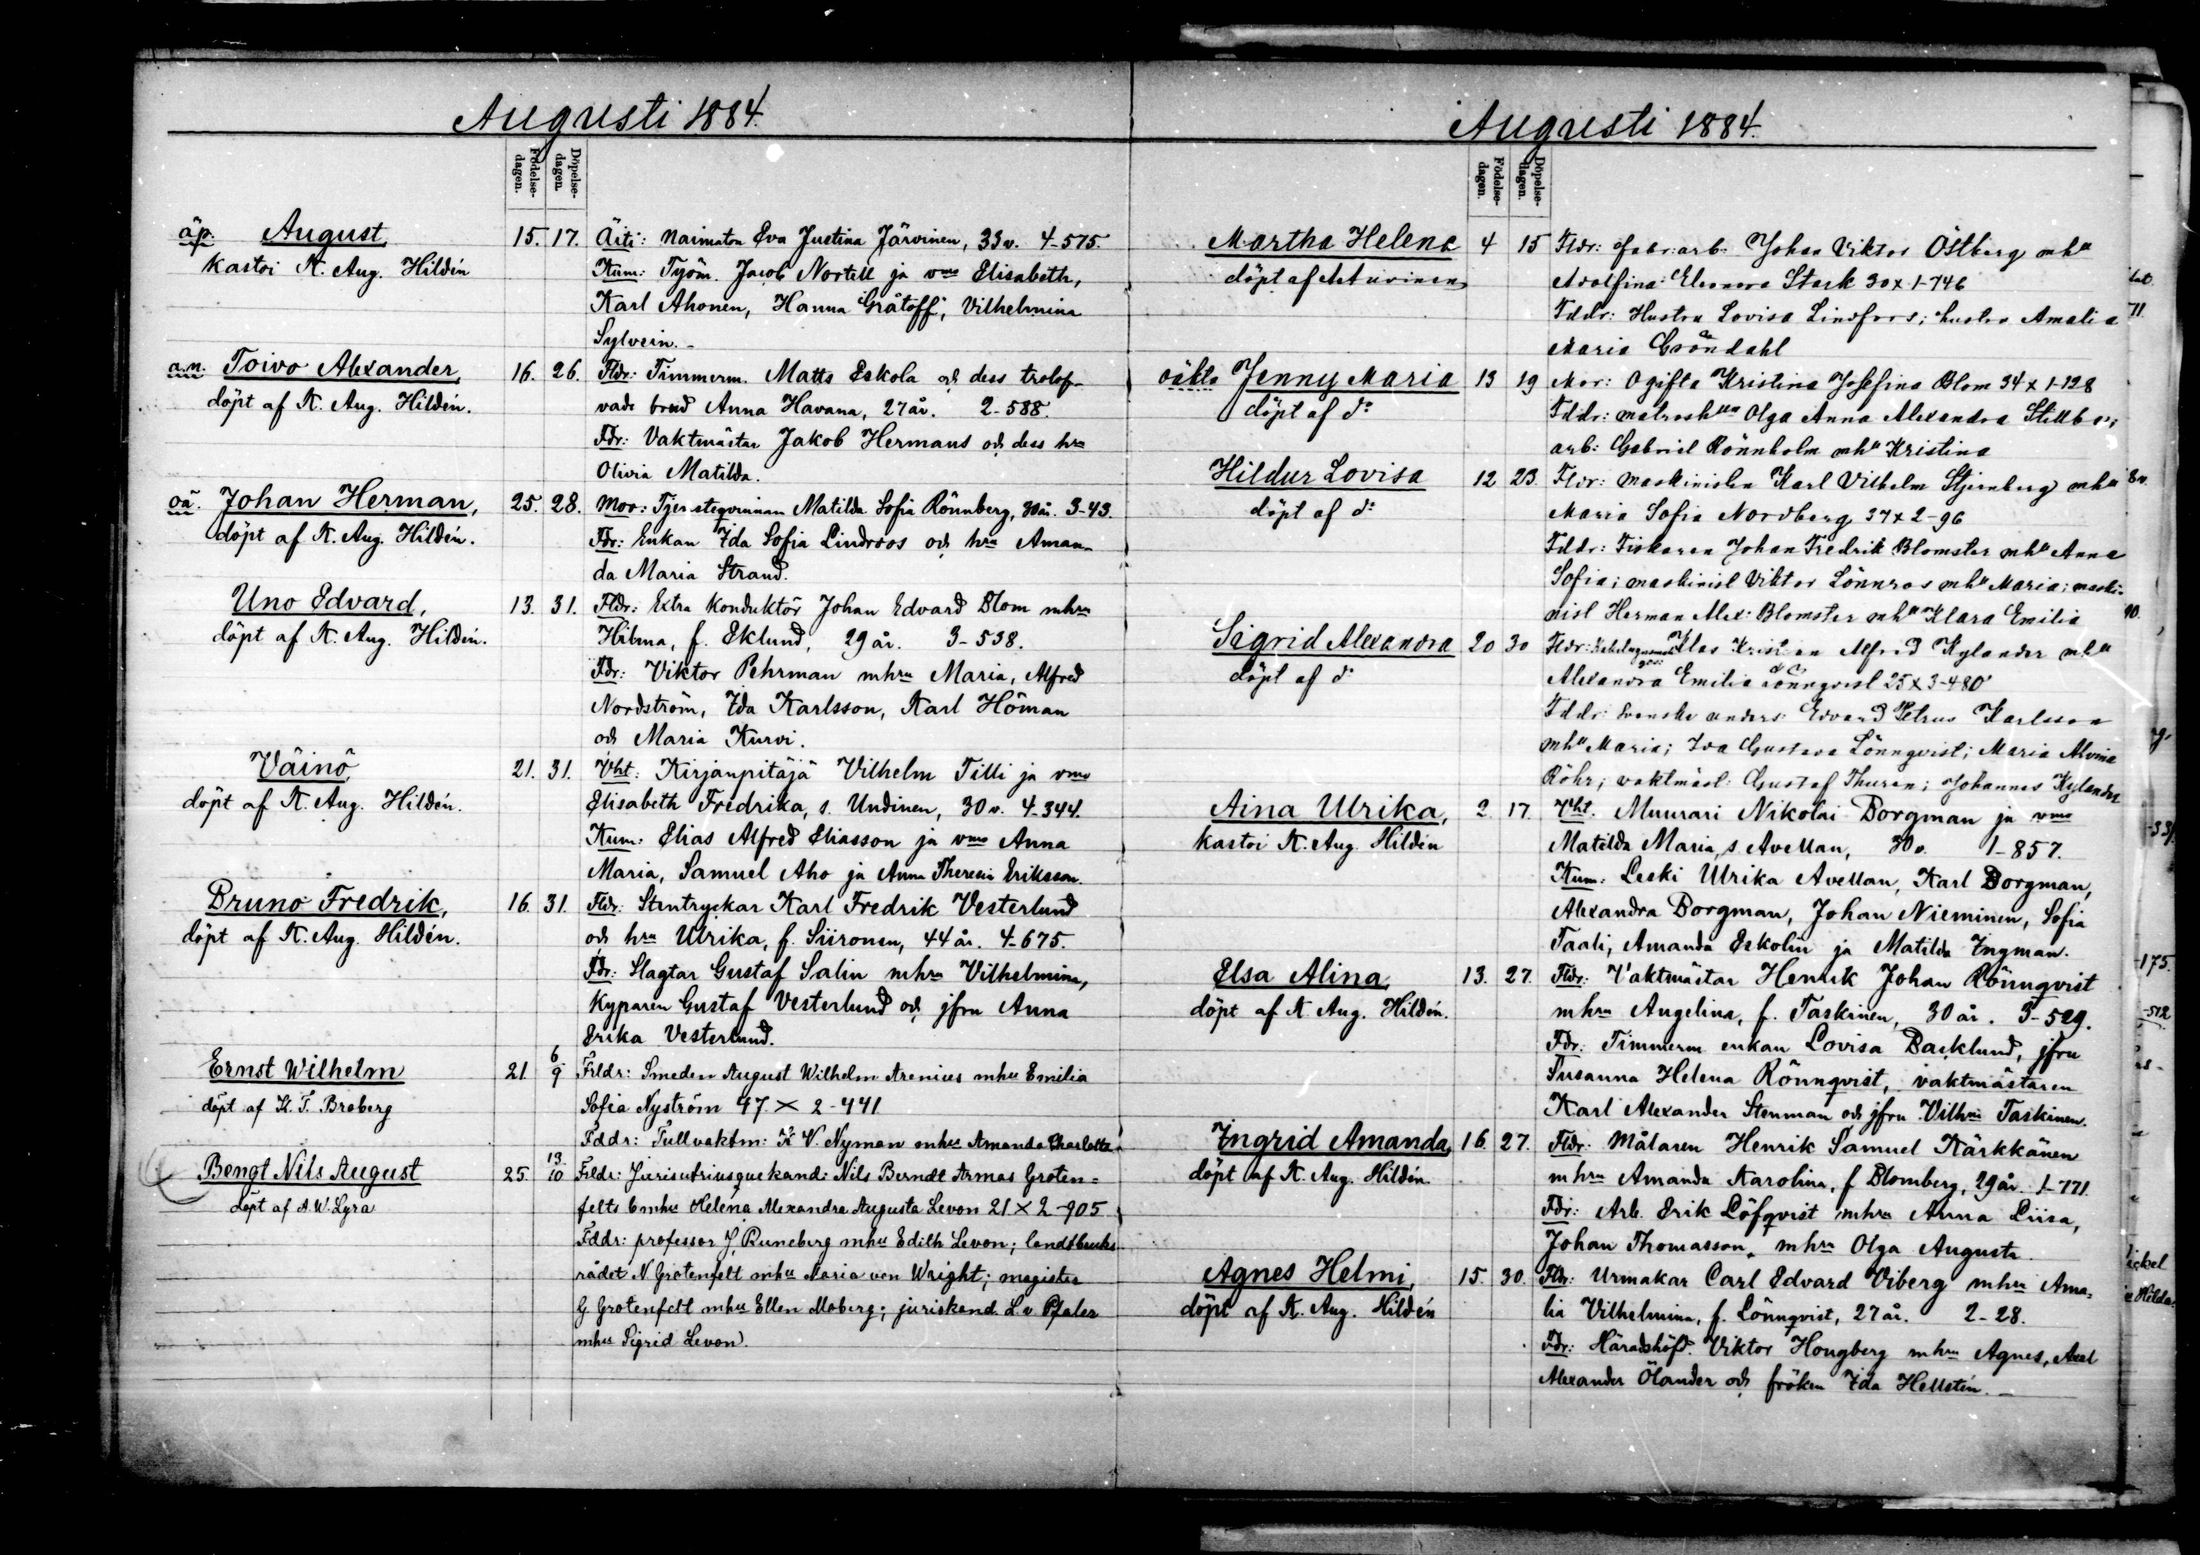 Augusti 1884.
Födelse-dagen. Döpelse-dagen.
äp. August, 15. 17. Äiti: Naimaton Eva Justina Järvinen, 33 v. 4-575.
kastoi K. Aug. Hildén Kum: Työm. Jacob Nortell ja vmo Elisabeth,
Karl Ahonen, Hanna Gråtoff, Vilhelmina
Sylvein.
Toivo Alexander, 16. 26. Fldr: Timmerm. Matts Eskola och dess trolof-
döpt af K. Aug. Hildén. vade brud Anna Havana, 27 år. 2-588.
Fdr: Vaktmästar Jakob Hermans och dess hru
Olivia Matilda.
oä. Johan Herman, 25. 28. Mor: Tjensteqvinnan Matilda Sofia Rönnberg, 30 år. 3-43.
döpt af K. Aug. Hildén. Fdr: Enkan Ida Sofia Lindroos och hru Aman-
da Maria Strand.
Uno Edvard, 13. 31. Fldr: Extra Konduktör Johan Edvard Blom mhru
döpt af K. Aug. Hildén. Hilma, f. Eklund, 29 år. 3-538.
Fdr: Viktor Pehrman mhru Maria, Alfred
Nordström, Ida Karlsson, Karl Höman
och Maria Kurvi.
Väinö, 21. 31. Vht: Kirjanpitäjä Vilhelm Tilli ja vmo
döpt af K. Aug. Hildén. Elisabeth Fredrika, s. Undinen, 30 v. 4-344.
Kum: Elias Alfred Eliasson ja vmo Anna
Maria, Samuel Aho ja Anna Theresia Eriksson.
Bruno Fredrik, 16. 31. Fldr: Stentryckar Karl Fredrik Vesterlund
döpt af K. Aug. Hildén. och hru Ulrika, f. Siironen, 44 år. 4-675.
Fdr: Slagtar Gustaf Salin mhru Vilhelmina,
Kyparen Gustaf Vesterlund och jfru Anna
Erika Vesterlund.
Ernst Wilhelm 21. 6/9 Frldr: Smeden August Wilhelm Arenius mhu Emilia
döpt af K. T. Broberg Sofia Nyström 47 × 2-441
Fddr: Tullvaktm: K V. Nyman mhu Amanda Charlotta
Bengt Nils August 25. 13/10 Frldr: Jurisutriusquekand: Nils Berndt Armas Groten=
döpt af A. W. Lyra felts mhu Helena Alexandra Augusta Levon 21 × 2-905
Fddr: professor J. Runeberg mhu Edith Levon; landtbruks
rådet N Grotenfelt mhu Maria von Wright; magister
G Grotenfelt mhu Ellen Moberg; juriskand. L. v Pfaler
mhu Sigrid Levon.
Augusti 1884.
Födelse-dagen. Döpelse-dagen.
Martha Helena 4 15 Fldr: fabr:arb: Johan Viktor Östberg mhu
döpt af Asturinen Adolfina Eleonora Stark 30 × 1-746
Fddr: Hustru Lovisa Lindfors; hustru Amalia
Maria Gröndahl
oäkta Jenny Maria 13 19 Mor: Ogifta Kristina Josefina Blom 34 × 1-128
döpt af do Fddr: matroshun Olga Anna Alexandra
arb: Gabriel Rönnholm mhu Kristina
Hildur Lovisa 12 23. Fldr: Maskinisten Karl Vilhelm Stjernberg mhu
döpt af do Maria Sofia Nordberg 37 × 2-96
Fddr: Fiskaren Johan Fredrik Blomster mhu Anna
Sofia; maskinist Viktor Lönnros mhu Maria; maski-
nist Herman Alex: Blomster mhu Klara Emilia
Sigrid Alexandra 20 30 Fldr: Klas Kristian Alfred Kylander mhu
döpt af do Alexandra Emilia Lönnqvist 25 × 3-480
Fddr: Svenske unders: Edvard Petrus Karlsson
mhu Maria; Ida Gustava Lönnqvist; Maria Alvina
Röhr; vaktmäst: Gustaf Thuren; Johannes Kylander
Aina Ulrika, 2 17. Vht. Muurari Nikolai Borgman ja vmo
kastoi K. Aug. Hildén Matilda Maria, s. Avellan, 30 v. 1-857.
Kum: Leski Ulrika Avellan, Karl Borgman,
Alexandra Borgman, Johan Nieminen, Sofia
Taali, Amanda Eskolin ja Matilda Ingman.
Elsa Alina, 13. 27. Fldr: Vaktmästar Henrik Johan Rönnqvist
döpt af K. Aug. Hildén. mhru Angelina, f. Taskinen, 30 år. 3-529.
Fdr: Timmerm enkan Lovisa Backlund, jfru
Susanna Helena Rönnqvist, vaktmästaren
Karl Alexander Stenman och jfru Vilhmi Taskinen.
Ingrid Amanda, 16. 27. Fldr: Målaren Henrik Samuel Kärkkänen
döpt af K. Aug. Hildén. mhru Amanda Karolina, f Blomberg, 29 år. 1-771.
Fdr: Arb. Erik Löfqvist mhru Anna Liisa,
Johan Thomasson, mhru Olga Augusta.
Agnes Helmi, 15. 30. Fldr: Urmakar Carl Edvard Viberg mhru Ama-
döpt af K. Aug. Hildén lia Vilhelmina, f. Lönnqvist, 27 år. 2-28.
Fdr: Häradshöfd. Viktor Hougberg mhru Agnes, Axel
Alexander Ölander och fröken Ida Hellstén.